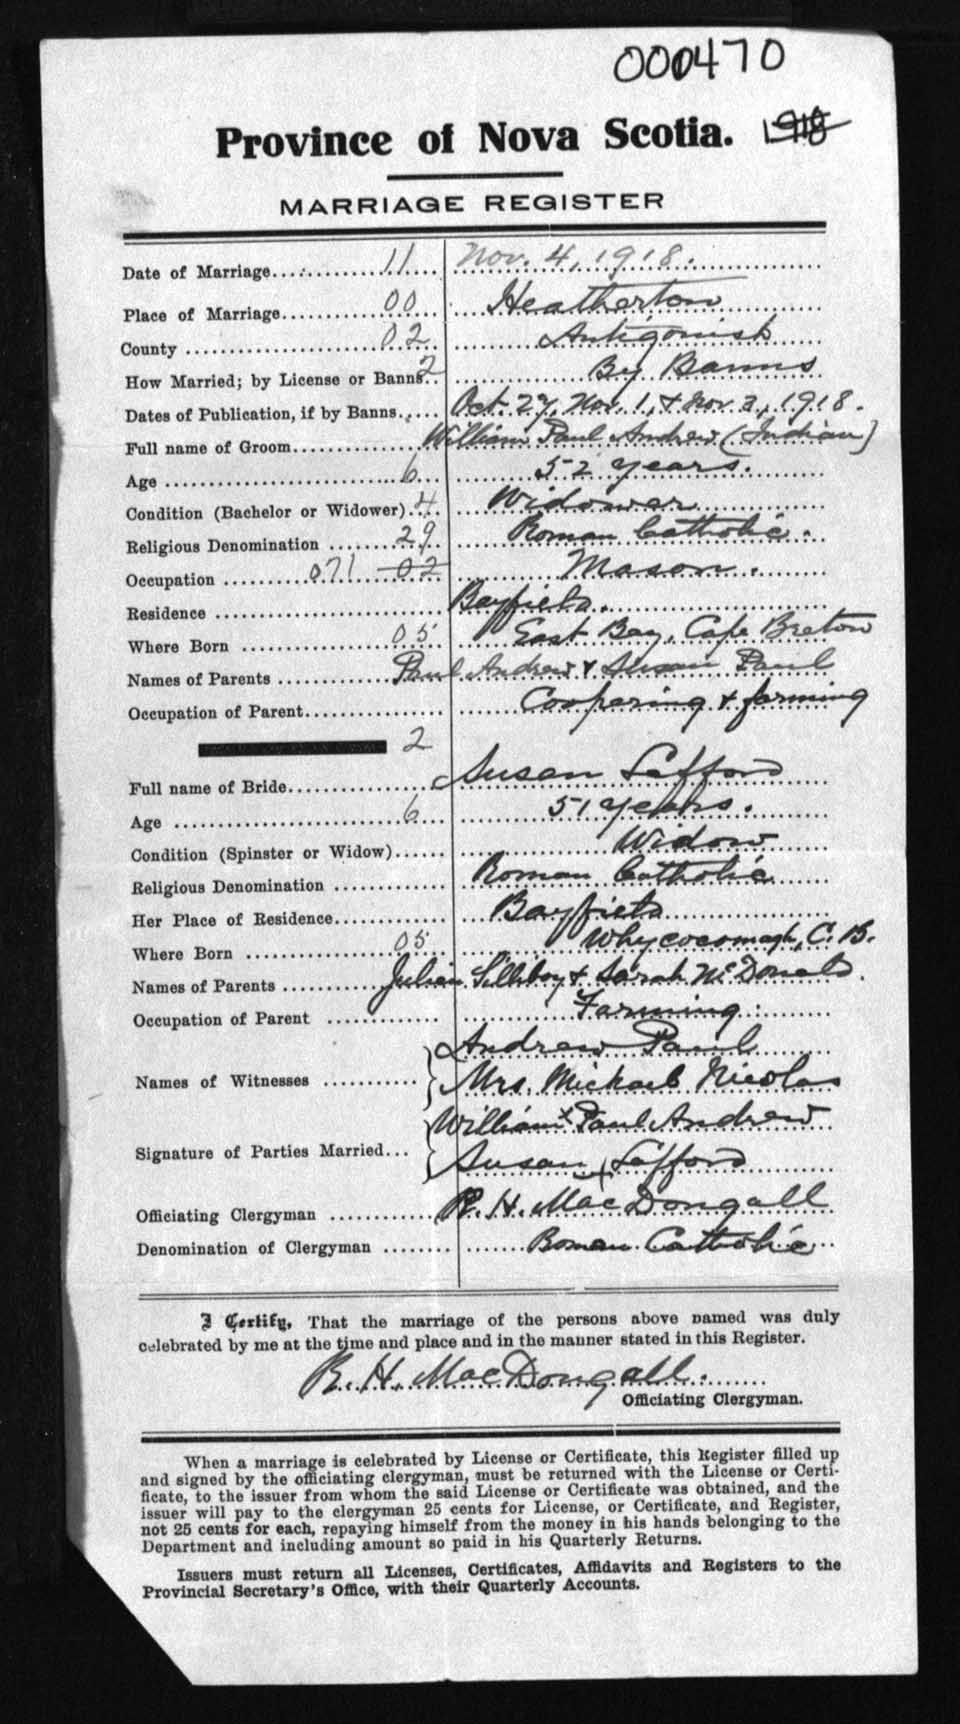 000470
Province of Nova Scotia. 1918
MARRIAGE REGISTER
Date of Marriage.... 11 Nov. 4, 1918.
Place of Marriage.... 00 Heatherton
County .... 02 Antigonish
How Married; by License or Banns.. 2 By Banns
Dates of Publication, if by Banns..... Oct. 27, Nov. 1, & Nov 3, 1918.
Full name of Groom.... William Paul Andrew (Indian)
Age .... 6 52 years.
Condition (Bachelor or Widower).... 4 Widower
Religious Denomination .... 29 Roman Catholic.
Occupation .... 071 02 Mason.
Residence .... Bayfield.
Where Born .... 05 East Bay, Cape Breton
Names of Parents .... Paul Andrew & Susan Paul
Occupation of Parent.... Coopering & farming
2
Full name of Bride.... Susan Lafford
Age .... 6 51 years.
Condition (Spinster or Widow)...... Widow
Religious Denomination .... Roman Catholic
Her Place of Residence.... Bayfield
Where Born .... 05 Whycocomagh, C. B.
Names of Parents .... Julian Silliboy & Sarah McDonald.
Occupation of Parent .... Farming
Andrew Paul
Names of Witnesses .... Mrs. Michael Nicolas
William x Paul Andrew
Signature of Parties Married...
Susan x Lafford
Officiating Clergyman .... R. H. MacDougall
Denomination of Clergyman .... Roman Catholic
I Certify, That the marriage of the persons above named was duly
celebrated by me at the time and place and in the manner stated in this Register.
R. H. MacDougall.
Officiating Clergyman.
When a marriage is celebrated by License or Certificate, this Register filled up
and signed by the officiating clergyman, must be returned with the License or Certi-
ficate, to the issuer from whom the said License or Certificate was obtained, and the
issuer will pay to the clergyman 25 cents for License, or Certificate, and Register,
not 25 cents for each, repaying himself from the money in his hands belonging to the
Department and including amount so paid in his Quarterly Returns.
Issuers must return all Licenses, Certificates, Affidavits and Registers to the
Provincial Secretary's Office, with their Quarterly Accounts.